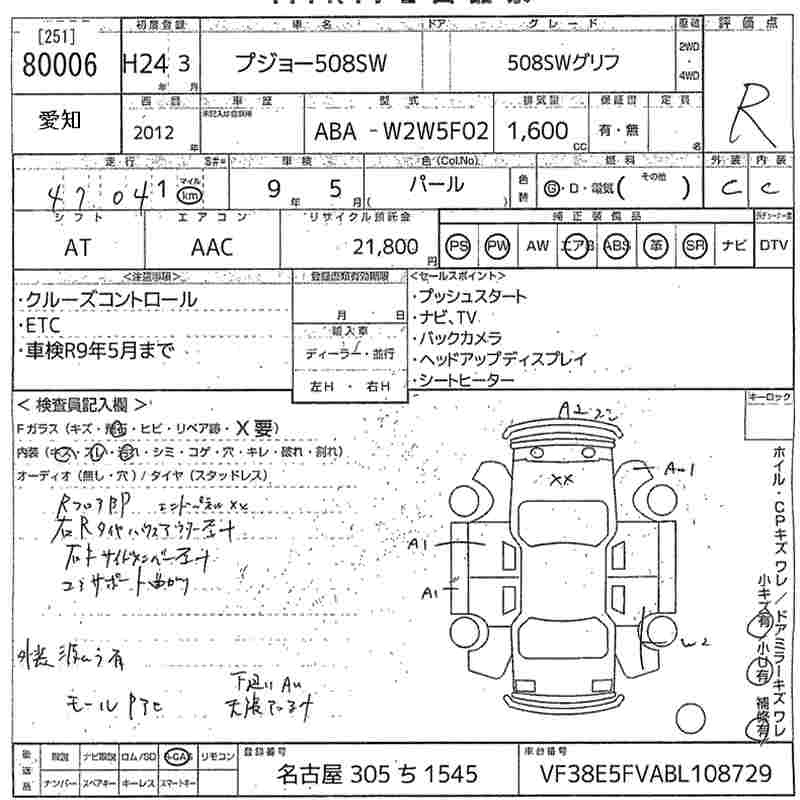 [251]
80006
初度登録
H24 3
年 月
車名
プジョー508SW
ドア
グレード
508SWグリフ
駆動
2WD
・
4WD
評価点
R
愛知
西暦
2012
年
車歴
未記入は自家用
型式
ABA -W2W5F02
排気量
1,600
CC
保証書
有・無
定員
名
走行
47041
マイル
km
S#=
車検
9 年 5 月
色(Col.No)
パール
( )
色替
燃料
G・D・電気( )
その他
外装
C
内装
C
シフト
AT
エアコン
AAC
リサイクル預託金
21,800
円
純正装備品
PS PW AW エアB ABS 革 SR ナビ DTV
<注意事項>
・クルーズコントロール
・ETC
・車検R9年5月まで
登録書類有効期限
月 日
輸入車
ディーラー・並行
左H ・ 右H
<セールスポイント>
・プッシュスタート
・ナビ、TV
・バックカメラ
・ヘッドアップディスプレイ
・シートヒーター
キーロック
< 検査員記入欄 >
Fガラス(キズ・飛石・ヒビ・リペア跡・X要)
内装(キズ・スレ・汚れ・シミ・コゲ・穴・キレ・破れ・割れ)
オーディオ(無し・穴)/タイヤ(スタッドレス)
RフロアBP エンドパネルXX
右Rタイヤハウスアウター
コアサポート曲がり
外装 有
モール
下廻り
A2
XX
A-1
A1
A1
W2
ホイル・CPキズワレ/ドアミラーキズワレ
小キズ有/小U有 補修有
後送品
取説 ナビ取説 ロム/SD B-CAS リモコン
ナンバー スペアキー キーレス スマートキー
登録番号
名古屋 305 ち 1545
車台番号
VF38E5FVABL108729